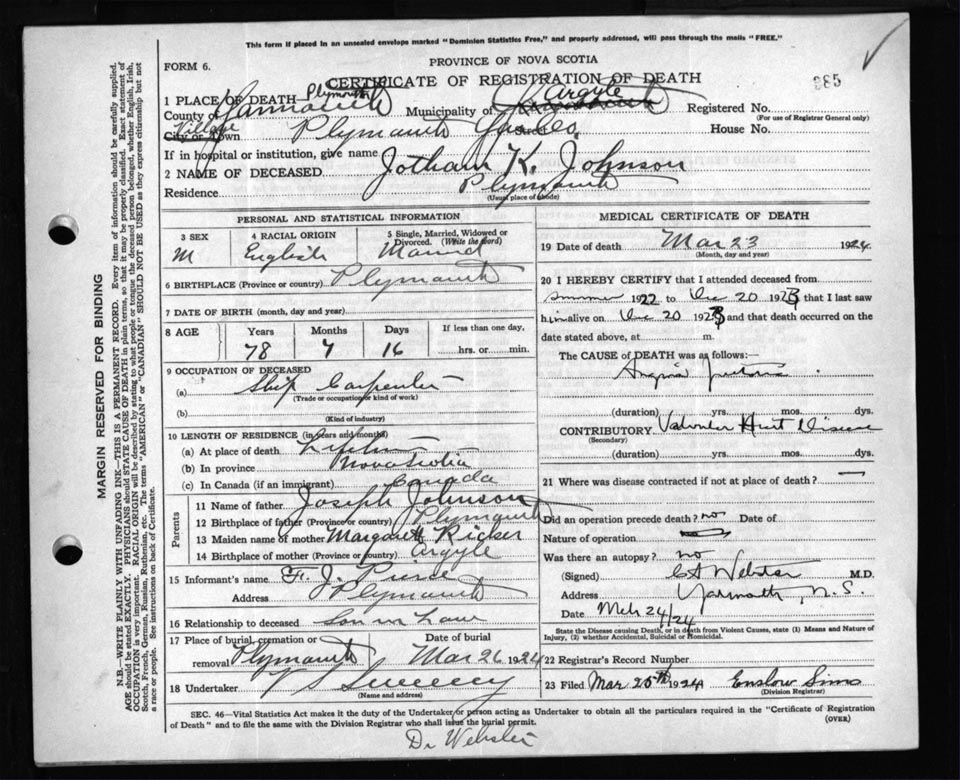 This form if placed in an unsealed envelope marked "Dominion Statistics Free," and properly addressed, will pass through the mails "FREE."
FORM 6.
PROVINCE OF NOVA SCOTIA
CERTIFICATE OF REGISTRATION OF DEATH
385
1 PLACE OF DEATH Plymouth
County of Yarmouth Municipality of Argyle Registered No.
(For use of Registrar General only)
Village
City or Town Plymouth Yar. Co. House No.
If in hospital or institution, give name
2 NAME OF DECEASED Jotham K. Johnson
Residence Plymouth
(Usual place of abode)
PERSONAL AND STATISTICAL INFORMATION
3 SEX 4 RACIAL ORIGIN 5 Single, Married, Widowed or Divorced. (Write the word)
M English Married
6 BIRTHPLACE (Province or country) Plymouth
7 DATE OF BIRTH (month, day and year)
8 AGE Years Months Days If less than one day,
78 7 16 hrs. or min.
9 OCCUPATION OF DECEASED
(a) Ship Carpenter
(Trade or occupation or kind of work)
(b)
(Kind of industry)
10 LENGTH OF RESIDENCE (in years and months)
(a) At place of death Lifetime
(b) In province Nova Scotia
(c) In Canada (if an immigrant) Canada
Parents
11 Name of father Joseph Johnson
12 Birthplace of father (Province or country) Plymouth
13 Maiden name of mother Margaret Ricker
14 Birthplace of mother (Province or country) Argyle
15 Informant's name F. J. Pierce
Address Plymouth
16 Relationship to deceased Son in Law
17 Place of burial, cremation or Date of burial
removal Plymouth Mar 26 1924
18 Undertaker V S Sweeny
(Name and address)
MEDICAL CERTIFICATE OF DEATH
19 Date of death Mar 23 1924
(Month, day and year)
20 I HEREBY CERTIFY that I attended deceased from
summer 1922 to Dec 20 1923 that I last saw
him alive on Dec 20 1923 and that death occurred on the
date stated above, at m.
The CAUSE of DEATH was as follows:
Angina Pectoris
(duration) yrs. mos. dys.
CONTRIBUTORY Valvular Heart Disease
(Secondary)
(duration) yrs. mos. dys.
21 Where was disease contracted if not at place of death? —
Did an operation precede death? no Date of
Nature of operation
Was there an autopsy? no
(Signed) CA Webster M.D.
Address Yarmouth, N.S.
Date Mch 24/24
State the Disease causing Death, or in death from Violent Causes, state (1) Means and Nature of Injury, (2) whether Accidental, Suicidal or Homicidal.
22 Registrar's Record Number
23 Filed Mar 25th 1924 Enslow Sims
(Division Registrar)
SEC. 46—Vital Statistics Act makes it the duty of the Undertaker or person acting as Undertaker to obtain all the particulars required in the "Certificate of Registration
of Death" and to file the same with the Division Registrar who shall issue the burial permit.
(OVER)
Dr Webster
MARGIN RESERVED FOR BINDING
N.B.—WRITE PLAINLY WITH UNFADING INK—THIS IS A PERMANENT RECORD. Every item of information should be carefully supplied.
AGE should be stated EXACTLY. PHYSICIANS should STATE CAUSE OF DEATH in plain terms, so that it may be properly classified. Exact statement of
OCCUPATION is very important. RACIAL ORIGIN will be described by stating to what people or tongue the deceased person belonged, whether English, Irish,
Scotch, French, German, Russian, Ruthenian, etc. The terms "AMERICAN" or "CANADIAN" SHOULD NOT BE USED as they express citizenship but not
a race or people. See instructions on back of Certificate.